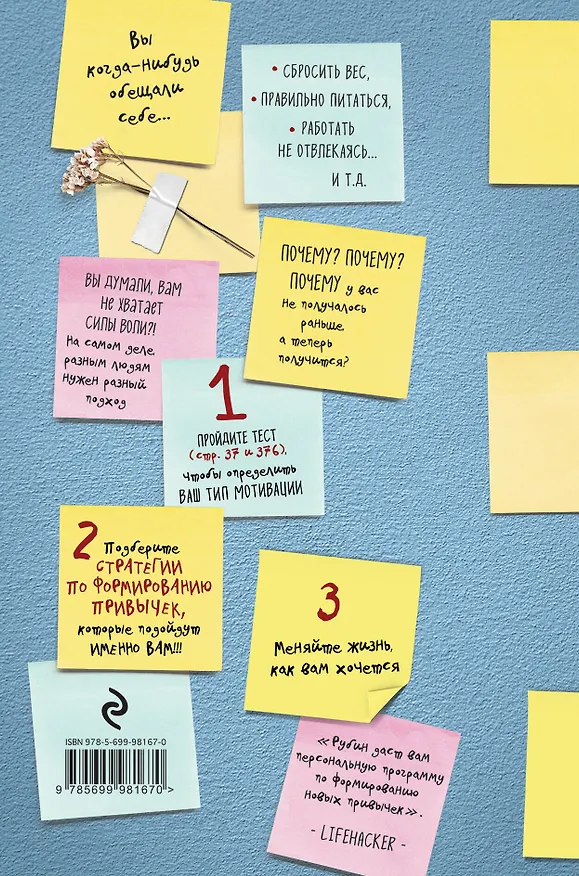 Вы
когда-нибудь
обещали
себе...
• СБРОСИТЬ ВЕС,
• ПРАВИЛЬНО ПИТАТЬСЯ,
• РАБОТАТЬ
НЕ ОТВЛЕКАЯСЬ...
И Т.Д.
ПОЧЕМУ? ПОЧЕМУ?
ПОЧЕМУ у вас
не получалось
раньше,
а теперь
получится?
ВЫ ДУМАЛИ, ВАМ
НЕ ХВАТАЕТ
СИЛЫ ВОЛИ?!
На самом деле,
разным людям
нужен разный
подход
1
ПРОЙДИТЕ ТЕСТ
(стр. 37 и 376),
чтобы определить
ВАШ ТИП МОТИВАЦИИ
2 Подберите
СТРАТЕГИИ
ПО ФОРМИРОВАНИЮ
ПРИВЫЧЕК,
которые подойдут
ИМЕННО ВАМ!!!
3
Меняйте жизнь,
как вам хочется
ISBN 978-5-699-98167-0
9 785699 981670 >
«Рубин даст вам
персональную программу
по формированию
новых привычек».
- LIFEHACKER -